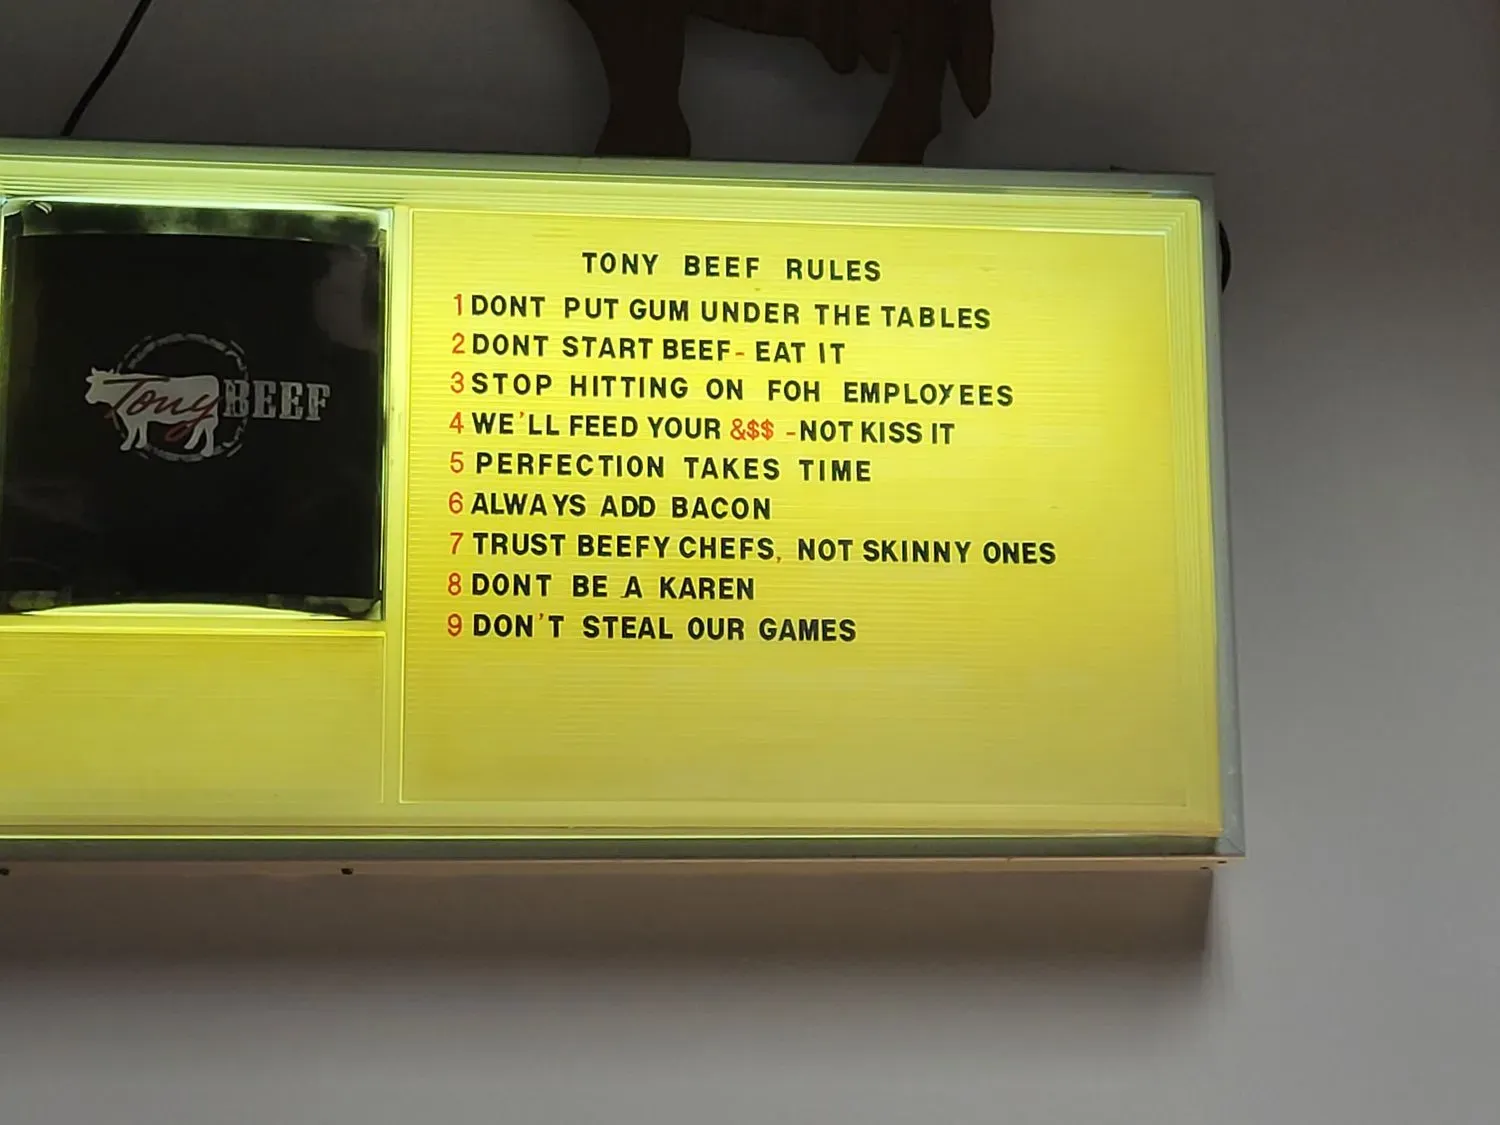 Tony BEEF
TONY BEEF RULES
1 DONT PUT GUM UNDER THE TABLES
2 DONT START BEEF- EAT IT
3 STOP HITTING ON FOH EMPLOYEES
4 WE'LL FEED YOUR &$$ -NOT KISS IT
5 PERFECTION TAKES TIME
6 ALWAYS ADD BACON
7 TRUST BEEFY CHEFS, NOT SKINNY ONES
8 DONT BE A KAREN
9 DON'T STEAL OUR GAMES